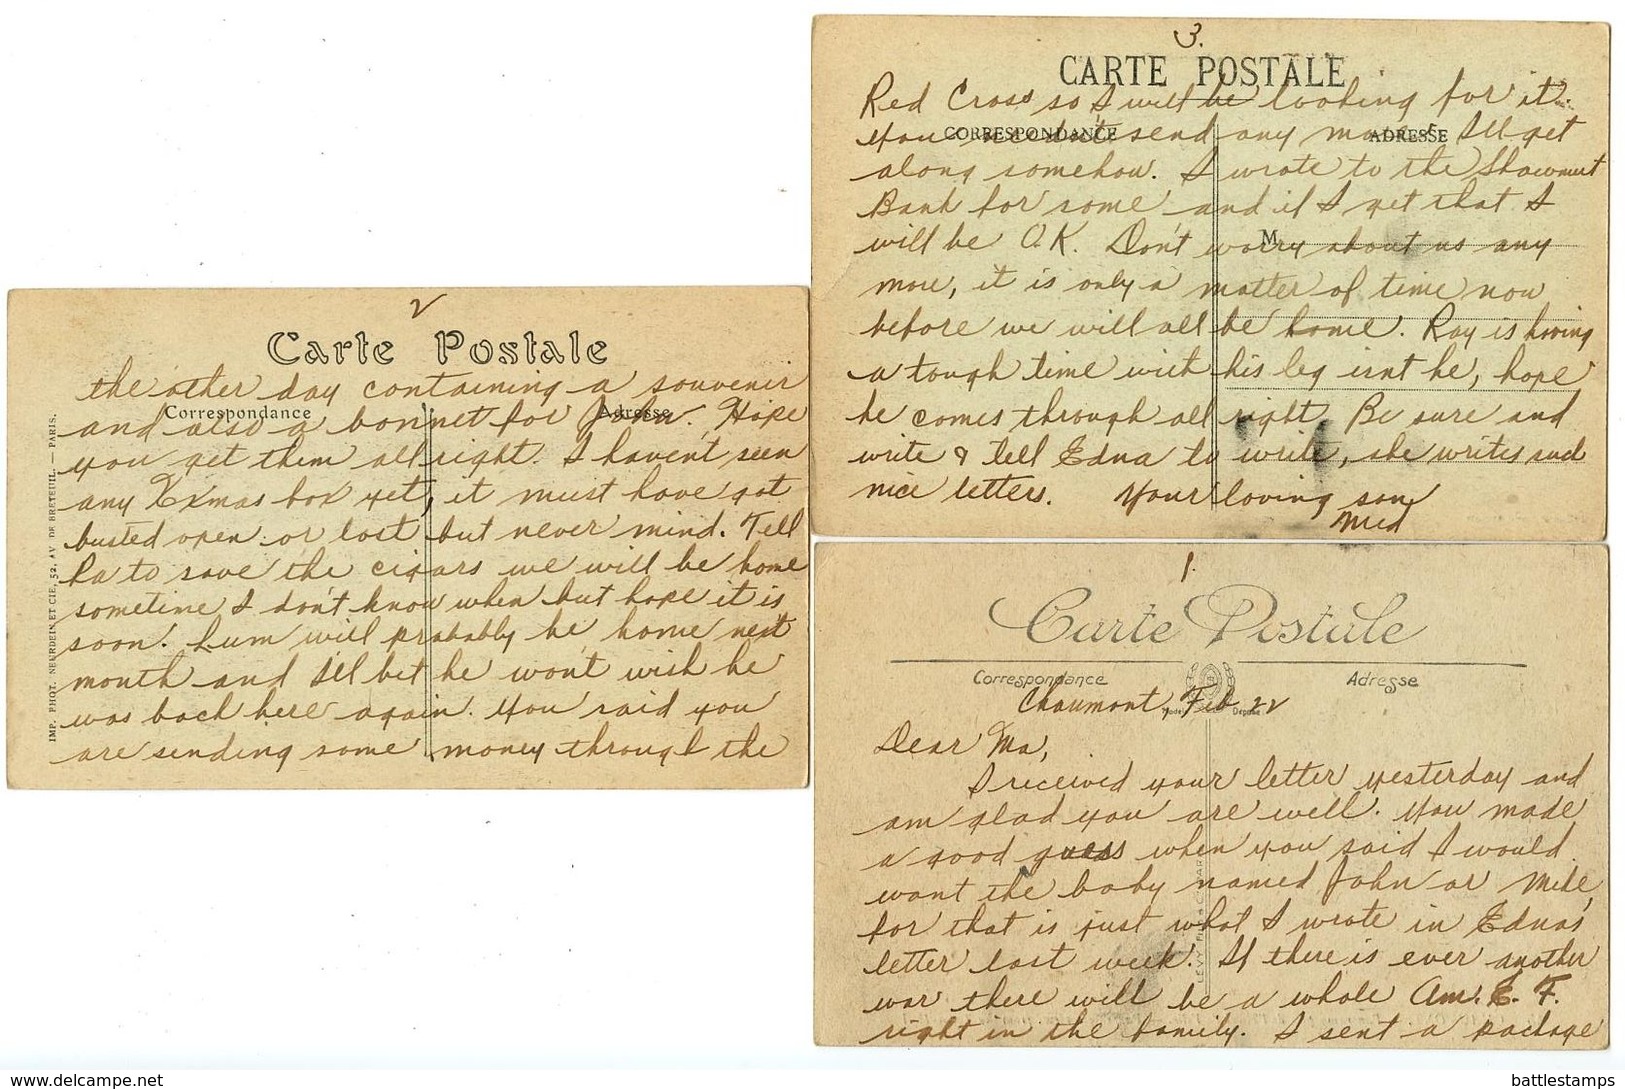 1.
Carte Postale
Correspondance
Adresse
Chaumont, Feb. 22
Dear Ma,
I received your letter yesterday and
am glad you are well. You made
a good guess when you said I would
want the baby named John or Mike,
for that is just what I wrote in Ednas
letter last week. If there is ever another
war there will be a whole Am. E. F.
right in the family. I sent a package
2
Carte Postale
Correspondance
Adresse
the other day containing a souvenir
and also a bonnet for John. Hope
you get them all right. I haven't seen
any Xmas box yet, it must have got
busted open or lost but never mind. Tell
Pa to save the cigars we will be home
sometime I don't know when but hope it is
soon. Lum will probably be home next
month and I'll bet he won't wish he
was back here again. You said you
are sending some money through the
IMP. PHOT. NEURDEIN ET CIE, 52, AV. DE BRETEUIL. — PARIS.
3.
CARTE POSTALE
CORRESPONDANCE
ADRESSE
M
Red Cross so I will be looking for it.
You needn't send any more I'll get
along somehow. I wrote to the Shawmut
Bank for some and if I get that I
will be O.K. Don't worry about us any
more, it is only a matter of time now
before we will all be home. Ray is having
a tough time with his leg isnt he, hope
he comes through all right. Be sure and
write & tell Edna to write, she writes such
nice letters. Your loving son
battlestamps